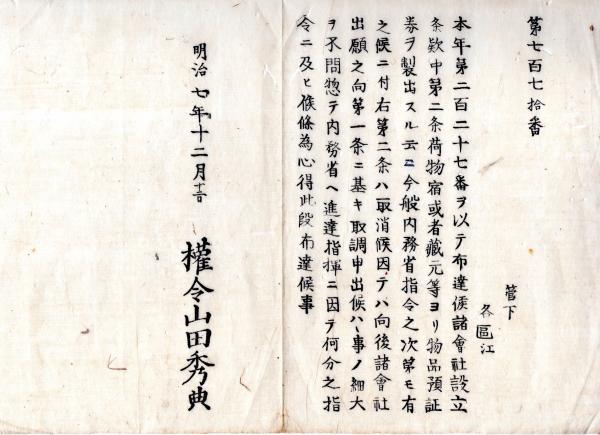 第七百七拾番
管下
各區江
本年第二百二十七番ヲ以テ布達候諸會社設立
条欵中第二条荷物宿或者藏元等ヨリ物品預証
券ヲ製出スル云ニ今般内務省指令之次第モ有
之候ニ付右第二条ハ取消候因テハ向後諸會社
出願之向第一条ニ基キ取調申出候ハヽ事ノ細大
ヲ不問惣テ内務省ヘ進達指揮ニ因テ何分之指
令ニ及ヒ候條為心得此段布達候事
明治七年十二月
權令山田秀典